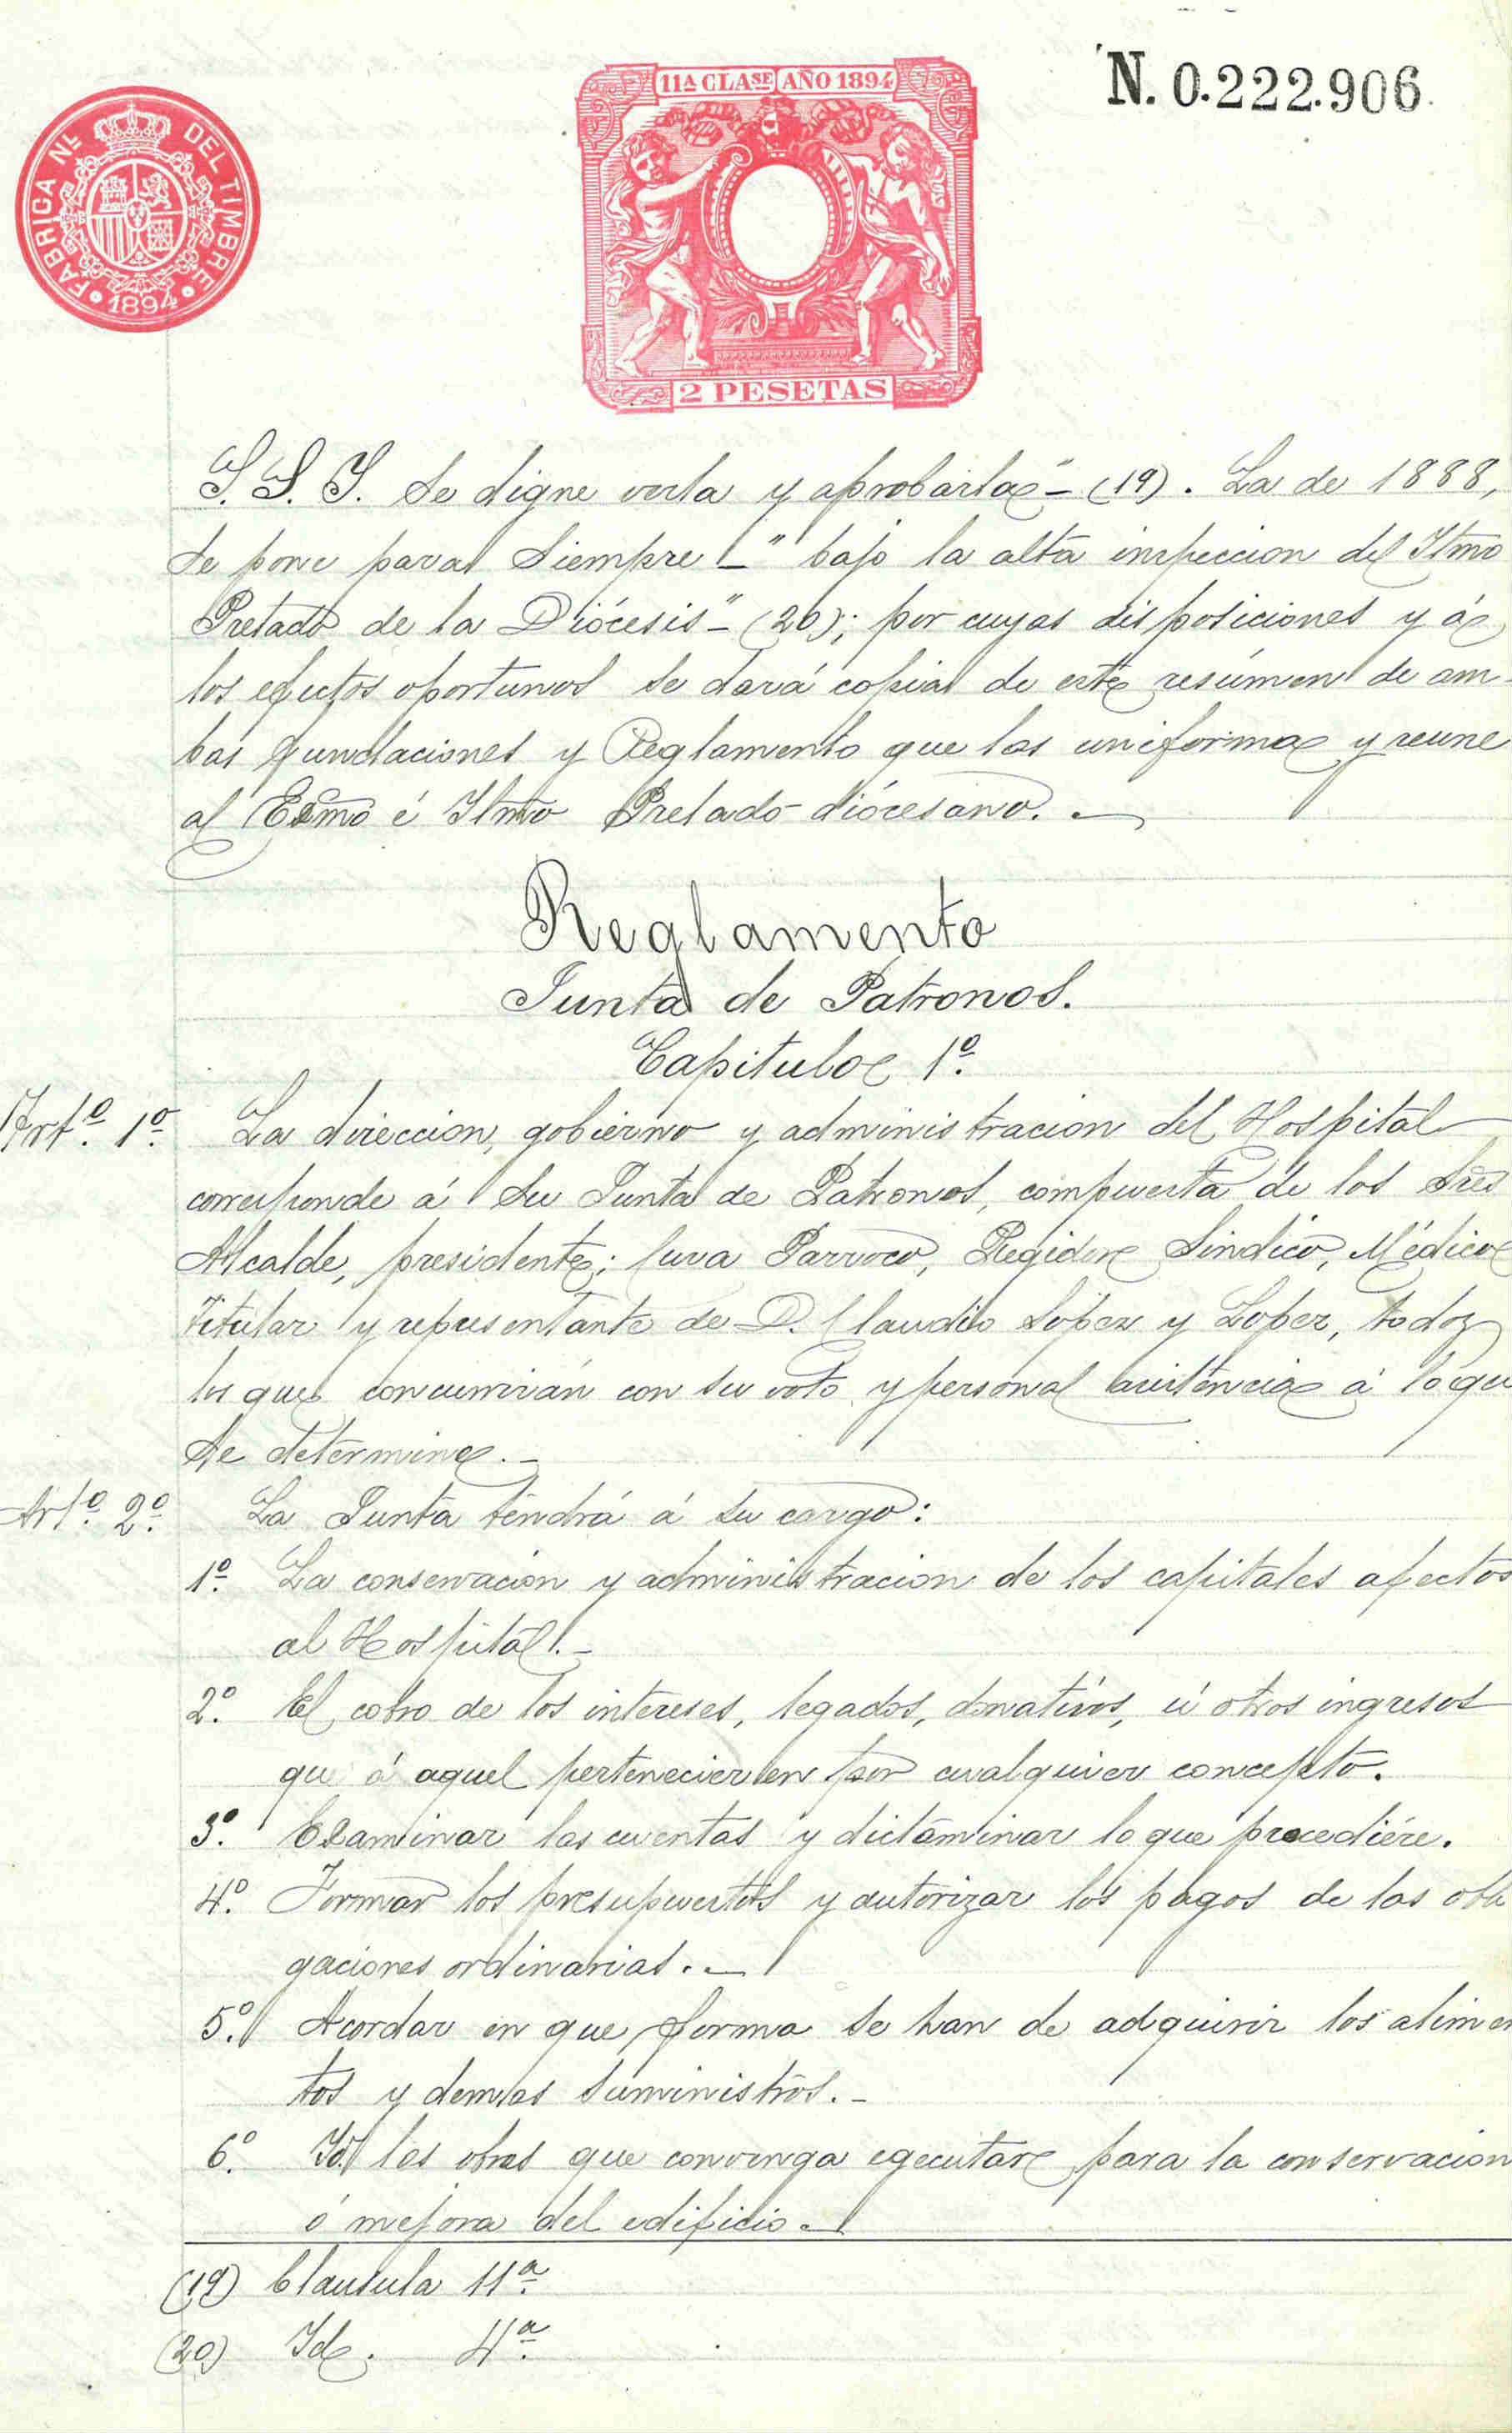 N. 0.222.906
11ª CLASE AÑO 1894
FABRICA Nᴸ DEL TIMBRE
1894
2 PESETAS
S. S. I. se digne verla y aprobarla"- (19). La de 1888,
se pone para siempre -" bajo la alta inspeccion del Iltmo
Prelado de la Diócesis"- (20); por cuyas disposiciones y á
los efectos oportunos se dará copia de este resúmen de am-
bas fundaciones y Reglamento que las uniforma y reune
al Exmo é Iltmo Prelado diócesano.-
Reglamento
Junta de Patronos.
Capitulo 1º.
Artº. 1º. La direccion, gobierno y administracion del Hospital
corresponde á su Junta de Patronos, compuesta de los Sres
Alcalde, presidente; Cura Parroco, Regidor Sindico, Médico
Titular y representante de D. Claudio Lópex y Lopez, todos
los que concurrirán con su voto y personal asistencia á lo que
se determine.-
Artº. 2º. La Junta tendrá á su cargo:
1º. La conservacion y administracion de los capitales afectos
al Hospital.-
2º. El cobro de los intereses, legados, donativos, ú otros ingresos
que á aquel pertenecieren por cualquier concepto.
3º. Examinar las cuentas y dictaminar lo que procediére.
4º. Formar los presupuestos y autorizar los pagos de las obli
gaciones ordinarias.-
5º. Acordar en que forma se han de adquirir los alimen
tos y demas suministros.-
6º. Id. las obras que convenga egecutar para la conservacion
ó mejora del edificio.-
(19) Clausula 11ª.
(20) Id. 4ª.